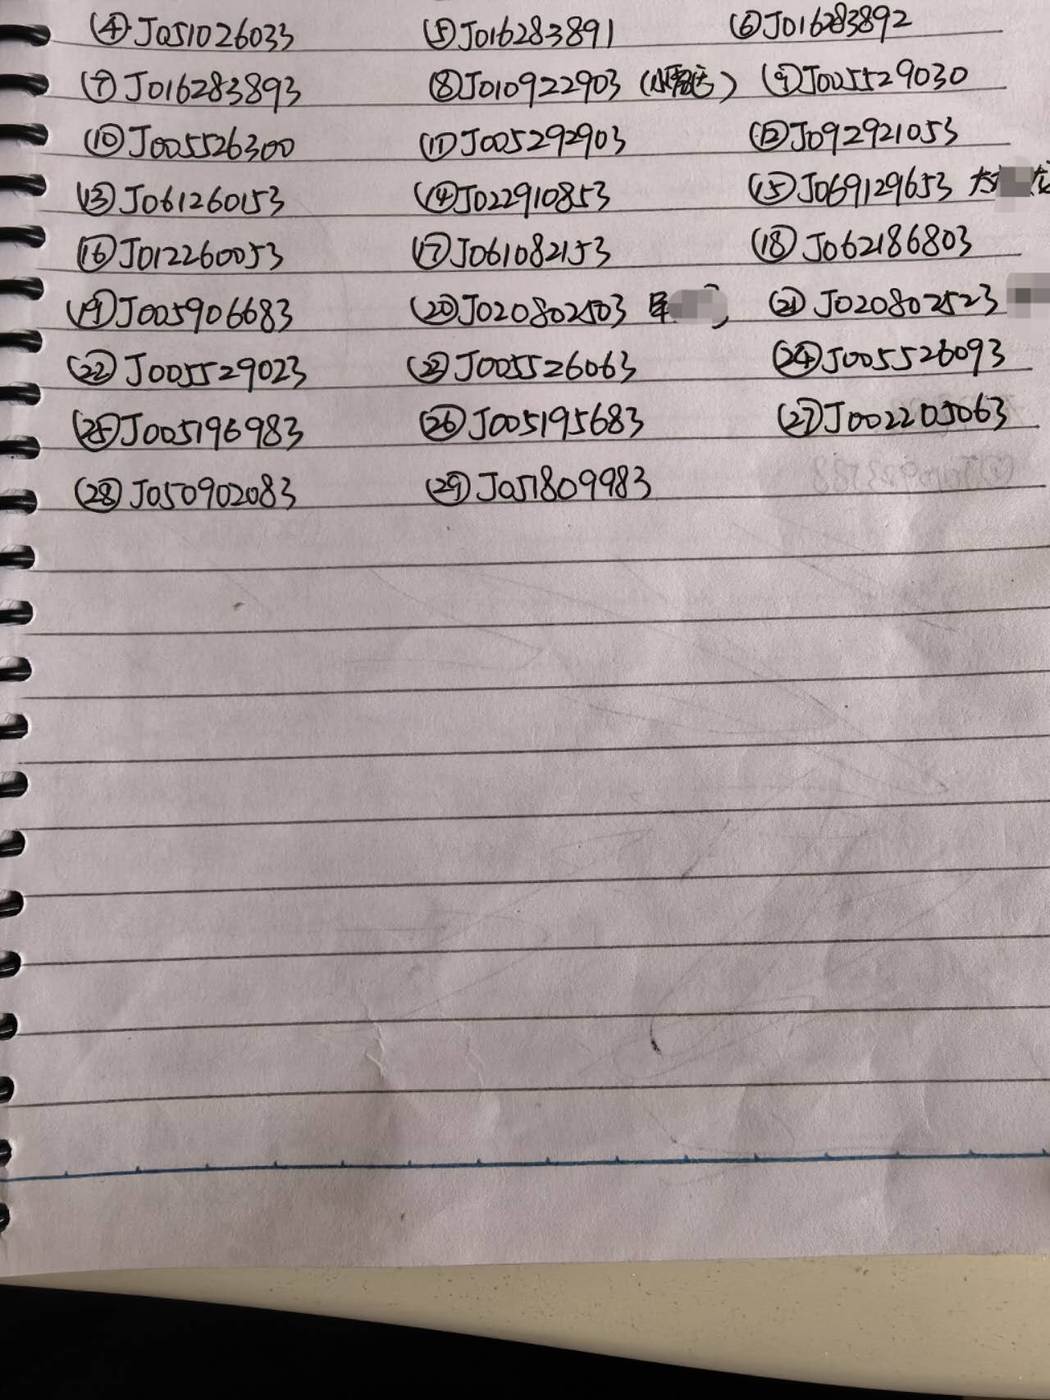 ④J051026033 ⑤J016283891 ⑥J016283892
⑦J016283893 ⑧J010922903 ⑨J005529030
⑩J005526300 ⑪J005292903 ⑫J092921053
⑬J061260153 ⑭J022910853 ⑮J069129653 大
⑯J012260053 ⑰J061082153 ⑱J062186803
⑲J005906683 ⑳J020802503 ㉑J020802523
㉒J005529023 ㉓J005526063 ㉔J005526093
㉕J005196983 ㉖J005195683 ㉗J002205063
㉘J050902083 ㉙J051809983